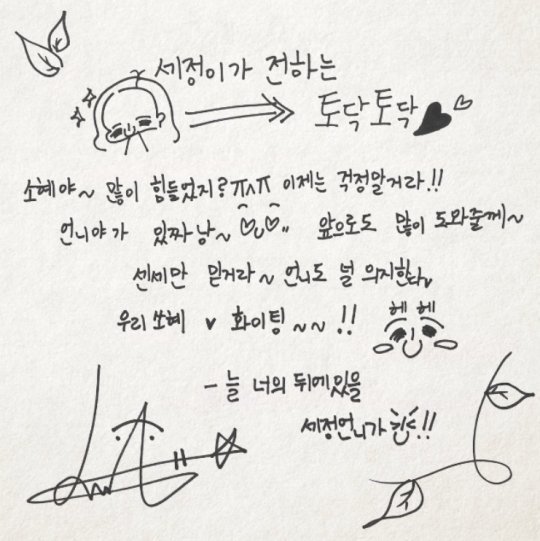 세정이가 전하는
토닥토닥
소혜야~ 많이 힘들었지? ㅠㅅㅠ 이제는 걱정말거라!!
언니야가 있짜낭~ 앞으로도 많이 도와줄께~
센세만 믿거라~ 언니도 널 의지한다
우리 쏘혜 ♥ 화이팅~~!!
헤헤
- 늘 너의 뒤에있을
세정언니가!!